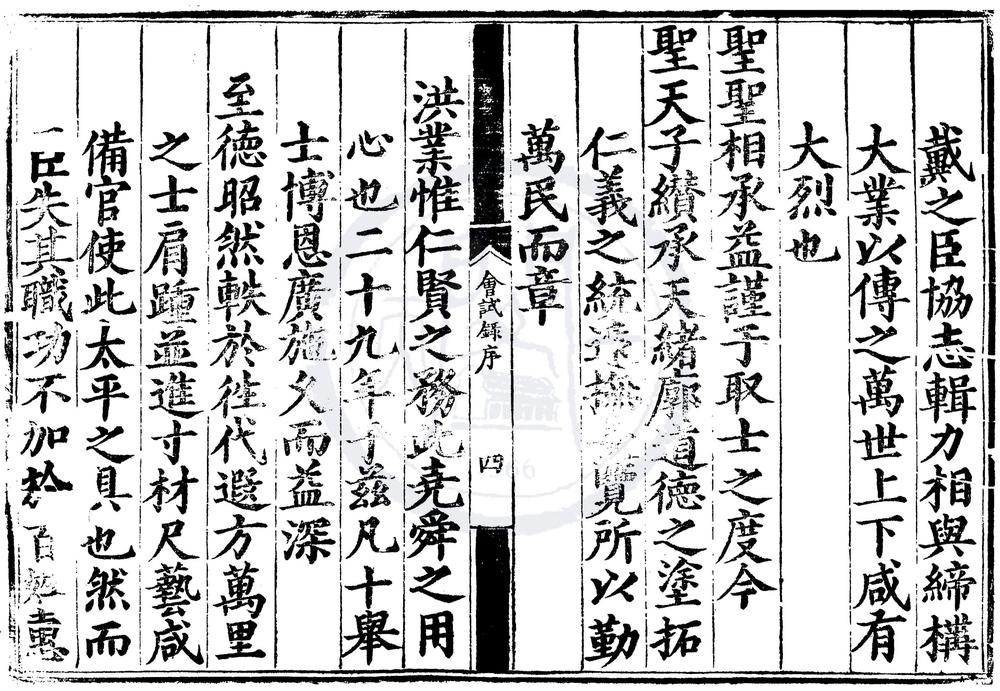 戴之臣協志輯力相與締構
大業以傳之萬世上下咸有
大烈也
聖聖相承益謹于取士之度今
聖天子纘承天緒廓道德之塗拓
仁義之統覽所以勤
萬民而章
會試錄序
四
洪業惟仁賢之務此堯舜之用
心也二十九年于茲凡十舉
士博恩廣施久而益深
至德昭然軼於往代遐方萬里
之士肩踵並進寸材尺藝咸
備官使此太平之具也然而
臣失其職功不加於百姓